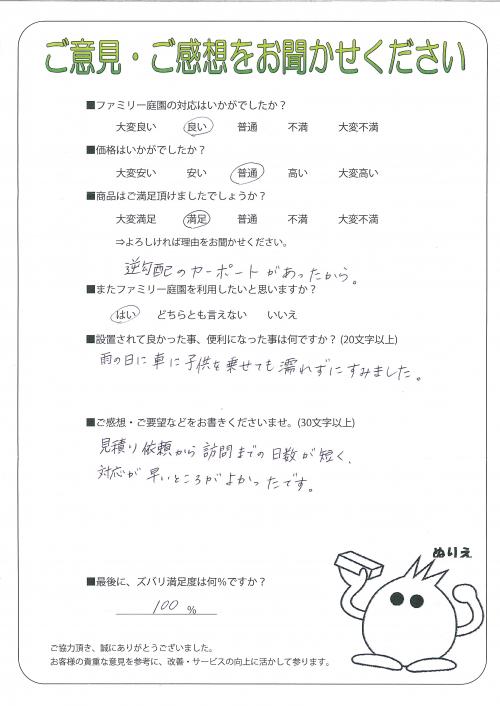 ご意見・ご感想をお聞かせください
■ファミリー庭園の対応はいかがでしたか？
大変良い 良い 普通 不満 大変不満
■価格はいかがでしたか？
大変安い 安い 普通 高い 大変高い
■商品はご満足頂けましたでしょうか？
大変満足 満足 普通 不満 大変不満
⇒よろしければ理由をお聞かせください。
逆勾配のカーポートがあったから。
■またファミリー庭園を利用したいと思いますか？
はい どちらとも言えない いいえ
■設置されて良かった事、便利になった事は何ですか？(20文字以上)
雨の日に車に子供を乗せても濡れずにすみました。
■ご感想・ご要望などをお書きくださいませ。(30文字以上)
見積り依頼から訪問までの日数が短く、
対応が早いところがよかったです。
ぬりえ
■最後に、ズバリ満足度は何％ですか？
100 ％
ご協力頂き、誠にありがとうございました。
お客様の貴重な意見を参考に、改善・サービスの向上に活かして参ります。